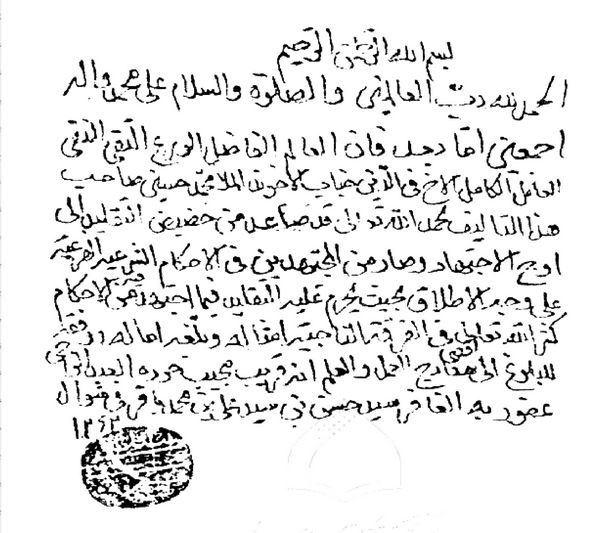 بسم الله الرحمن الرحيم
الحمد لله رب العالمين والصلوة والسلام على محمد واله
اجمعين اما بعد فان العالم الفاضل الورع التقي النقي
العامل الكامل الاخ في الدين جناب الاخوند الملا محمد حسين صاحب
هذا التاليف بحمد الله تعالى قد صاعد من حضيض التقليد الى
اوج الاجتهاد وصار من المجتهدين في الاحكام الشرعية الفرعية
على وجه الاطلاق بحيث يحرم عليه التقليد فيما اجتهد فيه من الاحكام
كثر الله تعالى في الفرقة الناجية امثاله وبلغه اماله ووفقه
للبلوغ الى اقصى مدارج العمل والعلم انه قريب مجيب حرره العبد الراجي
عفو ربه الغافر سيد حسين بن سيد محمد باقر في شوال
١٢٤٣